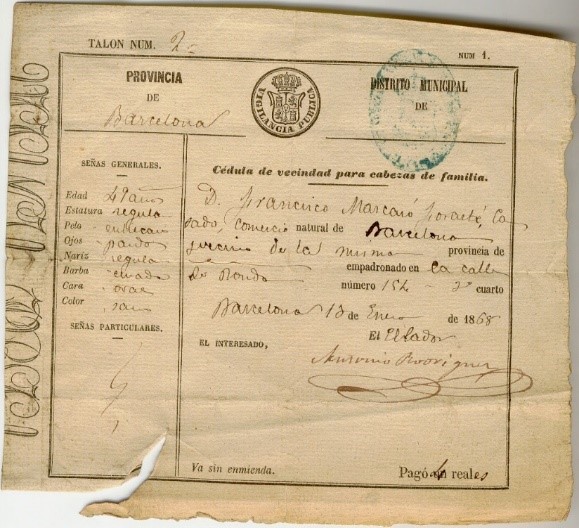 TALON NUM. 2
NUM 1.
PROVINCIA
DE
Barcelona
VIGILANCIA PUBLICA
DISTRITO MUNICIPAL
DE
Cédula de vecindad para cabezas de familia.
SEÑAS GENERALES.
Edad 49 años
Estatura regular
Pelo
Ojos pardos
Nariz regular
Barba
Cara oval
Color sano
SEÑAS PARTICULARES.
D. Francisco
sado, comercio natural de Barcelona,
vecino de la misma provincia de
empadronado en la calle
de Ronda
número 152 - 3º cuarto
Barcelona 13 de Enero de 1868
El Celador
EL INTERESADO,
Antonio Rodriguez
Va sin enmienda.
Pagó 4 reales